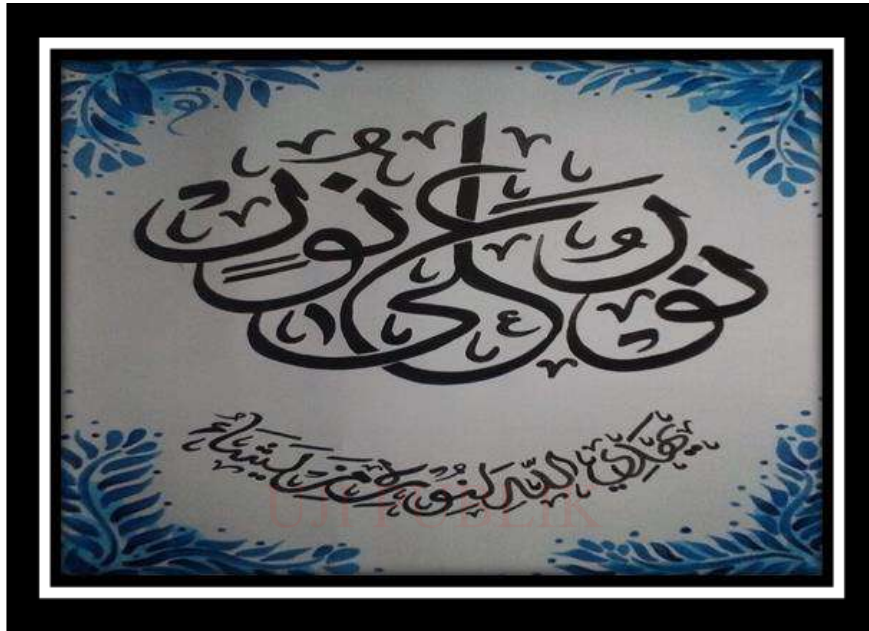 نُورٌ عَلَىٰ نُورٍ
يَهْدِي اللَّهُ لِنُورِهِ مَنْ يَشَاءُ
UJI PUBLIK